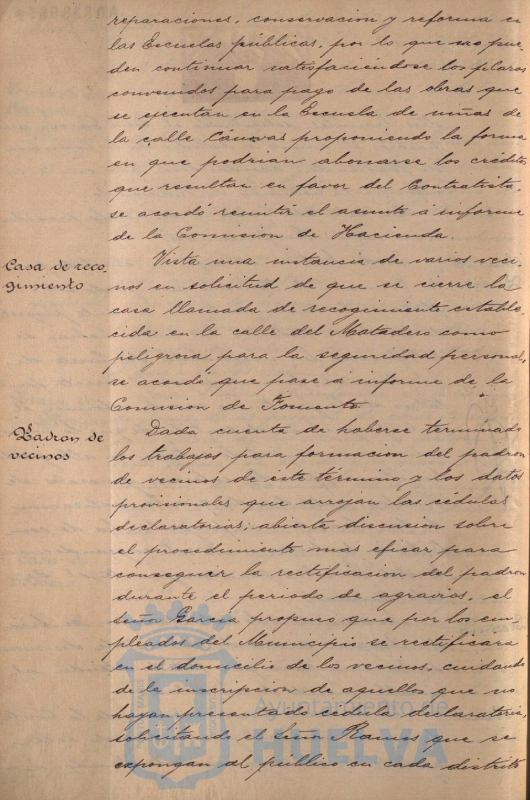 reparaciones, conservacion y reforma en
las Escuelas públicas, por lo que no pue-
den continuar satisfaciendose los plazos
convenidos para pago de las obras que
se ejecutan en la Escuela de niñas de
la calle Cánovas proponiendo la forma
en que podrian abonarse los créditos
que resultan en favor del Contratista,
se acordó remitir el asunto á informe
de la Comision de Hacienda.
Casa de reco-
gimiento
Vista una instancia de varios veci-
nos en solicitud de que se cierre la
casa llamada de recogimiento estable-
cida en la calle del Matadero como
peligrosa para la seguridad personal,
se acordó que pase á informe de la
Comision de Fomento
Padron de
vecinos
Dada cuenta de haberse terminado
los trabajos para formacion del padron
de vecinos de este término y los datos
provisionales que arrojan las cédulas
declaratorias; abierta discusion sobre
el procedimiento mas eficaz para
conseguir la rectificacion del padron
durante el periodo de agravios, el
señor García propuso que por los em-
pleados del Municipio se rectificara
en el domicilio de los vecinos, cuidando
de la inscripcion de aquellos que no
hayan presentado cédula declaratoria,
solicitando el señor Ramos que se
expongan al público en cada distrito
Ayuntamiento de
HUELVA